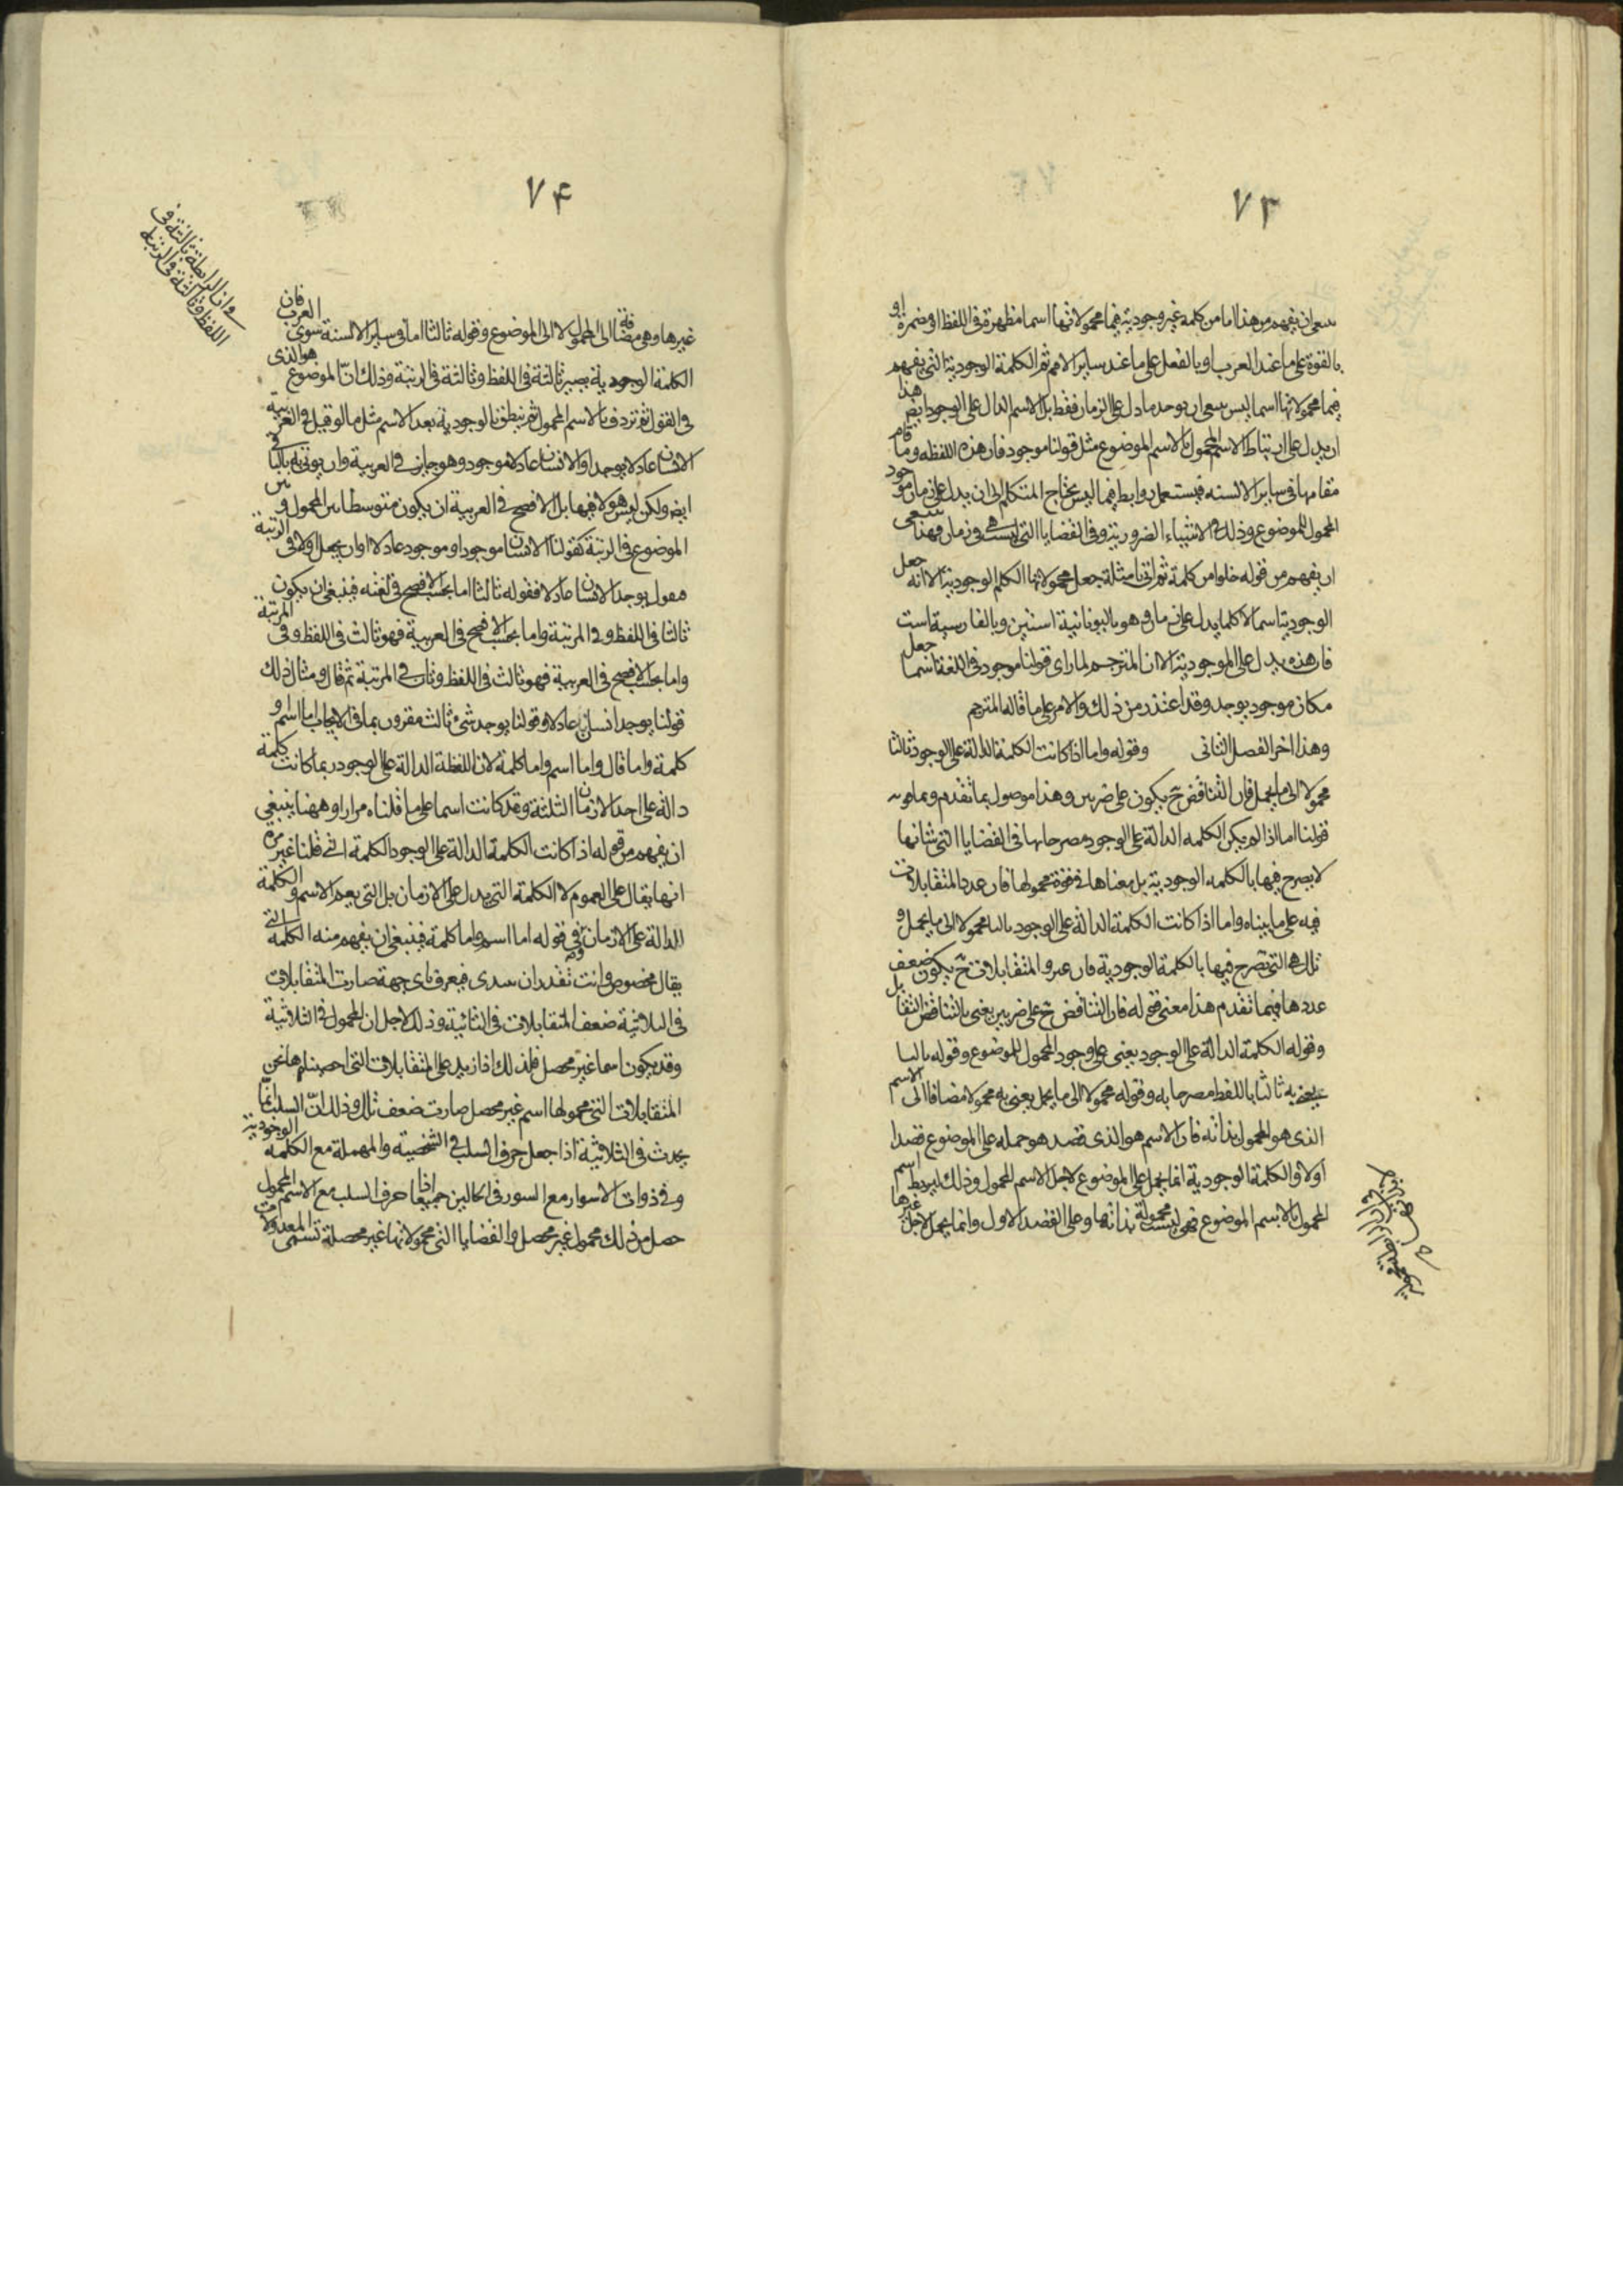 ٧٣
ان يفهم من هذا اما من كلمة غير وجودية فيما محمولاتها اسما مظهرة في اللفظ او مضمرة او
بالقوة على ما عند العرب او بالفعل على ما عند ساير الامم ثم الكلمة الوجودية التي يفهم
فيما محمولاتها اسما ليس ان يوجد ما دل على الزمان فقط بل الاسم الدال على الوجود ايض هذا
ان يدل على ارتباط الاسم المحمول بالاسم الموضوع مثل قولنا موجود فان هذه اللفظه وما قام
مقامها في ساير الالسنه فيستعمل روابط فيما ليس يحتاج المتكلم الى ان يدل على زمان موجود
المحمول للموضوع وذلك في الاشياء الضرورية وفي القضايا التي ليست هي في زمان فهذا
ان يفهم من قوله خلوا من كلمة ثم اتى بامثلة جعل محمولاتها الكلم الوجودية الا انه جعل
الوجودية اسما لا كلما يدل على زمان وهو باليونانية استين وبالفارسية است
فان هذه يدل على الموجودية الا ان المترجم لما راى قولنا موجود في اللغة اسما جعل
مكان موجود يوجد وقد اعتذر من ذلك والامر على ما قاله المترجم
وهذا اخر الفصل الثاني وقوله واما اذا كانت الكلمة الدالة على الوجود ثالثا
محمولا الى ما يحمل فان التناقض ح يكون على ضربين وهذا موصول بما تقدم وتمامه
قولنا اما اذا لم يكن الكلمه الدالة على الوجود مصرحا بها في القضايا التي شانها
لا يصرح فيها بالكلمه الوجودية بل معناها في قوة محمولها فان عدد المتقابلات
فيه على ما بيناه واما اذا كانت الكلمة الدالة على الوجود ثالثا محمولا الى ما يحمل و
تلك هي التي تصرح فيها بالكلمة الوجودية فان عدد المتقابلات ح يكون ضعف
عددها فيما تقدم هذا معنى قوله فان التناقض ح على ضربين يعني بالتناقض التقابل
وقوله الكلمة الدالة على الوجود يعني على وجود المحمول للموضوع وقوله ثالثا
يعني به ثالثا باللفظ مصرحا به وقوله محمولا الى ما يحمل يعني به محمولا مضافا الى الاسم
الذي هو المحمول بذاته فان الاسم هو الذي قصد هو حمله على الموضوع قصدا
اولا والكلمة الوجودية انما يحمل على الموضوع لاجل الاسم المحمول وذلك ليربط اسم
المحمول بالاسم الموضوع فهي ليست محمولة بذاتها وعلى القصد الاول وانما يحمل لاجل غيرها
٧۴
وان الرابطة ثالثة في
اللفظ وثالثة في الرتبة
غيرها وهي مضافة الى المحمول لا الى الموضوع وقوله ثالثا اما في ساير الالسنة سوى العرب فان
الكلمة الوجودية يصير ثالثة في اللفظ وثالثة في الرتبة وذلك انّ الموضوع هو الذي
في القول ثم تردف بالاسم المحمول ثم ينطق بالوجودية بعد الاسم مثل ما لو قيل في العربية
الانسان عادلا يوجد او الانسان عادلا موجود وهو جايز في العربية وان يوتى به ثالثا في
ايض ولكن ليس هو لافيها بل الافصح في العربية ان يكون متوسطا بين المحمول و
الموضوع في الرتبة كقولنا الانسان موجود او موجود عادلا او ان يجعل اولا في الرتبة
فيقول يوجد الانسان عادلا فقوله ثالثا اما بحسب الافصح في لغته فينبغي ان يكون
ثالثا في اللفظ وفي المرتبة واما بحسب الافصح في العربية فهو ثالث في اللفظ وفي المرتبة
واما بحسب الافصح في العربية فهو ثالث في اللفظ وثان في المرتبة ثم قال ومثال ذلك
قولنا يوجد انسان عادلا وقولنا يوجد شئ ثالث مقرون بما في الايجاب اما اسم و
كلمة واما قال واما اسم واما كلمة لان اللفظة الدالة على الوجود ربما كانت كلمة
دالة على احد الازمان الثلثة وقد كانت اسما على ما قلناه مرارا وههنا ينبغي
ان يفهم من قوله اذا كانت الكلمة الدالة على الوجود الكلمة التي قلنا غير مرة
انها يقال على العموم لا الكلمة التي يدل على الازمان بل التي يعم الاسم و الكلمة
الدالة على الازمان وفي قوله اما اسم واما كلمة فينبغي ان يفهم منه الكلمة التي
يقال بخصوص وانت تقدر ان فيعرف باى جهة صارت المتقابلات
في الثلاثية ضعف المتقابلات في الثنائية وذلك لاجل ان المحمول في الثلاثية
وقد يكون اسما غير محصل فلذلك اذا زيد على المتقابلات التي احصيناها نحن
المتقابلات التي محمولها اسم غير محصل صارت ضعف تلك وذلك انّ السلب انّما
يحدث في الثلاثية اذا جعل حرف السلب في الشخصية والمهملة مع الكلمة الوجودية
وفي ذوات الاسوار مع السور في الحالين جميعا اذا حرف السلب مع الاسم المحمول
حصل من ذلك محمول غير محصل والقضايا التي محمولاتها غير محصلة تسمى المعدولات